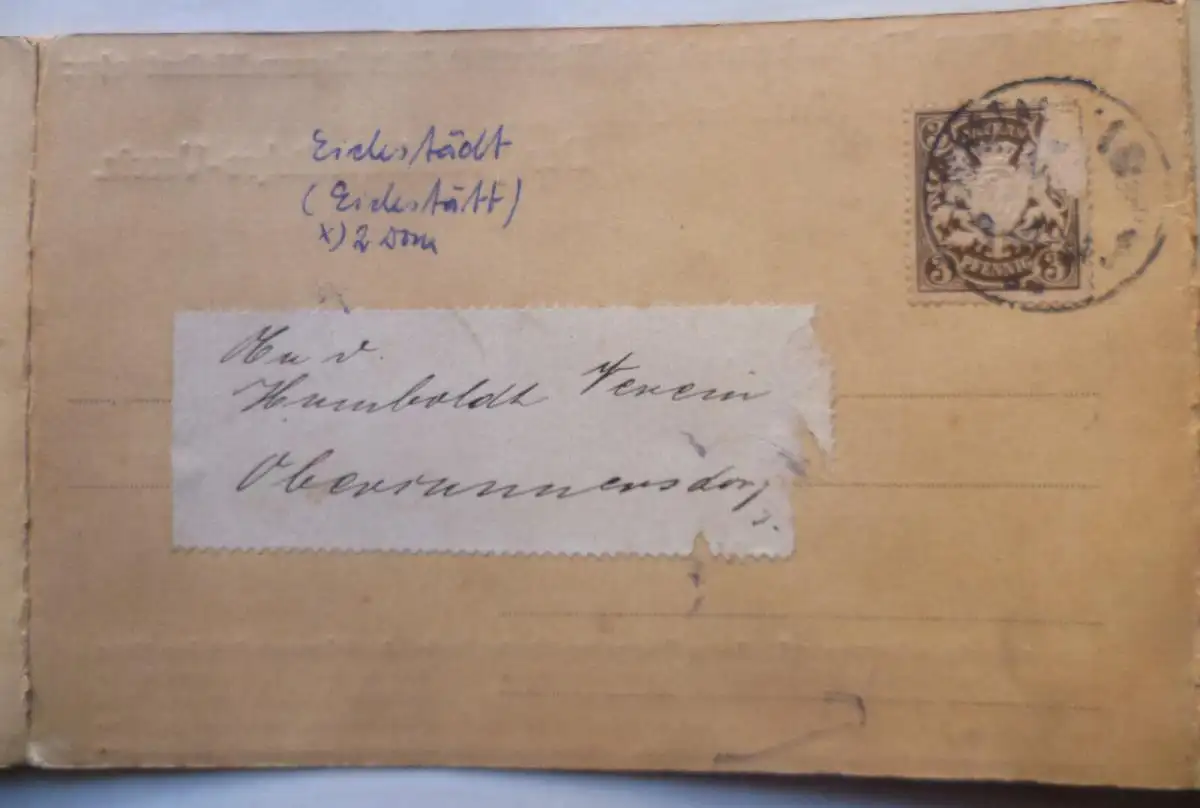 Eichstädt
(Eichstätt)
x) 2 Dom
3
3
3
PFENNIG
An d.
Humboldt Verein
Obercunnersdorf